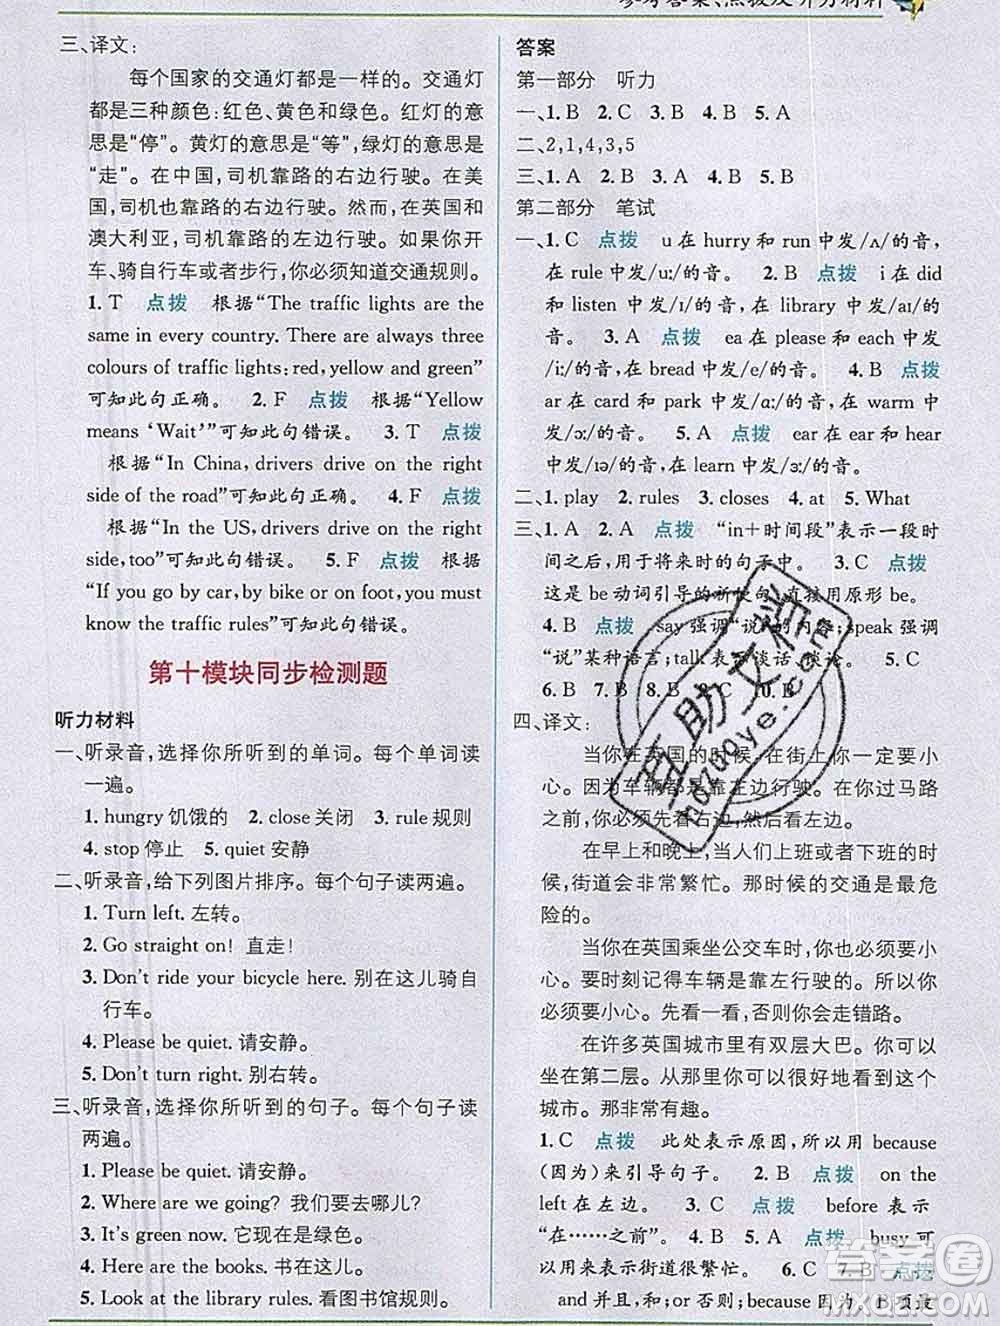 参考答案、点拨及听力材料
三、译文：
每个国家的交通灯都是一样的。交通灯
都是三种颜色：红色、黄色和绿色。红灯的意
思是“停”。黄灯的意思是“等”，绿灯的意思是
“走”。在中国，司机靠路的右边行驶。在美
国，司机也靠路的右边行驶。然而，在英国和
澳大利亚，司机靠路的左边行驶。如果你开
车、骑自行车或者步行，你必须知道交通规则。
1. T 点拨 根据“The traffic lights are the
same in every country. There are always three
colours of traffic lights: red, yellow and green”
可知此句正确。 2. F 点拨 根据“Yellow
means ‘Wait’”可知此句错误。 3. T 点拨
根据“In China, drivers drive on the right
side of the road”可知此句正确。 4. F 点拨
根据“In the US, drivers drive on the right
side, too”可知此句错误。 5. F 点拨 根据
“If you go by car, by bike or on foot, you must
know the traffic rules”可知此句错误。
第十模块同步检测题
听力材料
一、听录音，选择你所听到的单词。每个单词读
一遍。
1. hungry 饥饿的 2. close 关闭 3. rule 规则
4. stop 停止 5. quiet 安静
二、听录音，给下列图片排序。每个句子读两遍。
1. Turn left. 左转。
2. Go straight on! 直走！
3. Don't ride your bicycle here. 别在这儿骑自
行车。
4. Please be quiet. 请安静。
5. Don't turn right. 别右转。
三、听录音，选择你所听到的句子。每个句子读
两遍。
1. Please be quiet. 请安静。
2. Where are we going? 我们要去哪儿？
3. It's green now. 它现在是绿色。
4. Here are the books. 书在这儿。
5. Look at the library rules. 看图书馆规则。
答案
第一部分 听力
一、1. B 2. C 3. B 4. B 5. A
二、2,1,4,3,5
三、1. A 2. B 3. A 4. A 5. B
第二部分 笔试
一、1. C 点拨 u 在 hurry 和 run 中发/ʌ/的音，
在 rule 中发/uː/的音。 2. B 点拨 i 在 did
和 listen 中发/ɪ/的音，在 library 中发/aɪ/的
音。 3. A 点拨 ea 在 please 和 each 中发
/iː/的音，在 bread 中发/e/的音。 4. B 点拨
ar 在 card 和 park 中发/ɑː/的音，在 warm 中
发/ɔː/的音。 5. A 点拨 ear 在 ear 和 hear
中发/ɪə/的音，在 learn 中发/ɜː/的音。
二、1. play 2. rules 3. closes 4. at 5. What
三、1. A 2. A 点拨 “in＋时间段”表示一段时
间之后，用于将来时的句子中。 3. C 点拨
这是 be 动词引导的祈使句，直接用原形 be。
4. B 点拨 say 强调“说”的内容；speak 强调
“说”某种语言；talk 表示谈话、谈论。 5. C
6. B 7. B 8. B 9. C 10. B
四、译文：
当你在英国的时候，在街上你一定要小
心。因为车辆都是靠左边行驶。你过马路
之前，你必须先看右边，然后看左边。
在早上和晚上，当人们上班或者下班的时
候，街道会非常繁忙。那时候的交通是最危
险的。
当你在英国乘坐公交车时，你也必须要小
心。要时刻记得车辆是靠左行驶的。所以你
必须要小心。先看一看，否则你会走错路。
在许多英国城市里有双层大巴。你可以
坐在第二层。从那里你可以更好地看到这个
城市。那非常有趣。
1. C 点拨 此处表示原因，所以用 because
（因为）来引导句子。 2. B 点拨 on the
left 在左边。 3. C 点拨 before 表示
“在……之前”。 4. B 5. A 点拨 busy 可
以用来表示街道很繁忙。 6. C 7. B 点拨
and 并且，和；or 否则；because 因为。B 项最
互助文科
huzuoye.com
答案圈
MXQE.COM